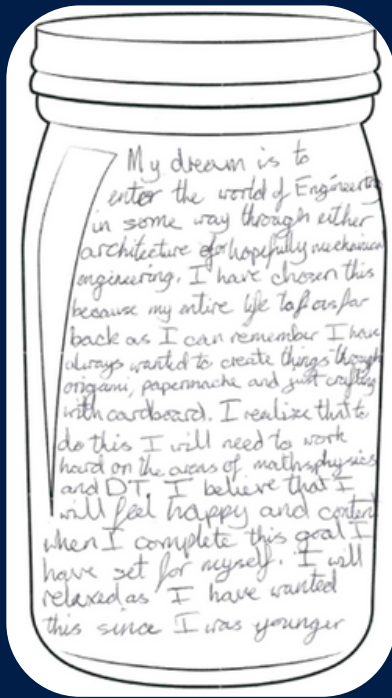 My dream is to
enter the world of Engineering
in some way through either
architecture or hopefully mechanical
engineering. I have chosen this
because my entire life as far
back as I can remember I have
always wanted to create things through
origami, papermache and just crafting
with cardboard. I realize that to
do this I will need to work
hard on the areas of maths, physics
and DT. I believe that I
will feel happy and content
when I complete this goal I
have set for myself. I will
relaxed as I have wanted
this since I was younger